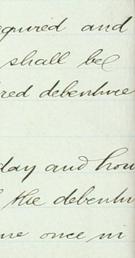 equired and
shall be
red debenture
day and hou
the debentu
me once in